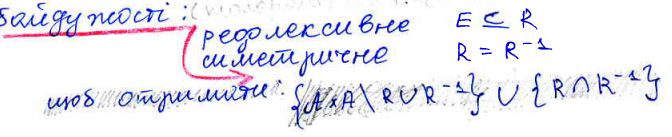 байдужості:
рефлексивне E ⊆ R
симетричне R = R⁻¹
щоб отримати: {A×A\R∪R⁻¹} ∪ {R∩R⁻¹}